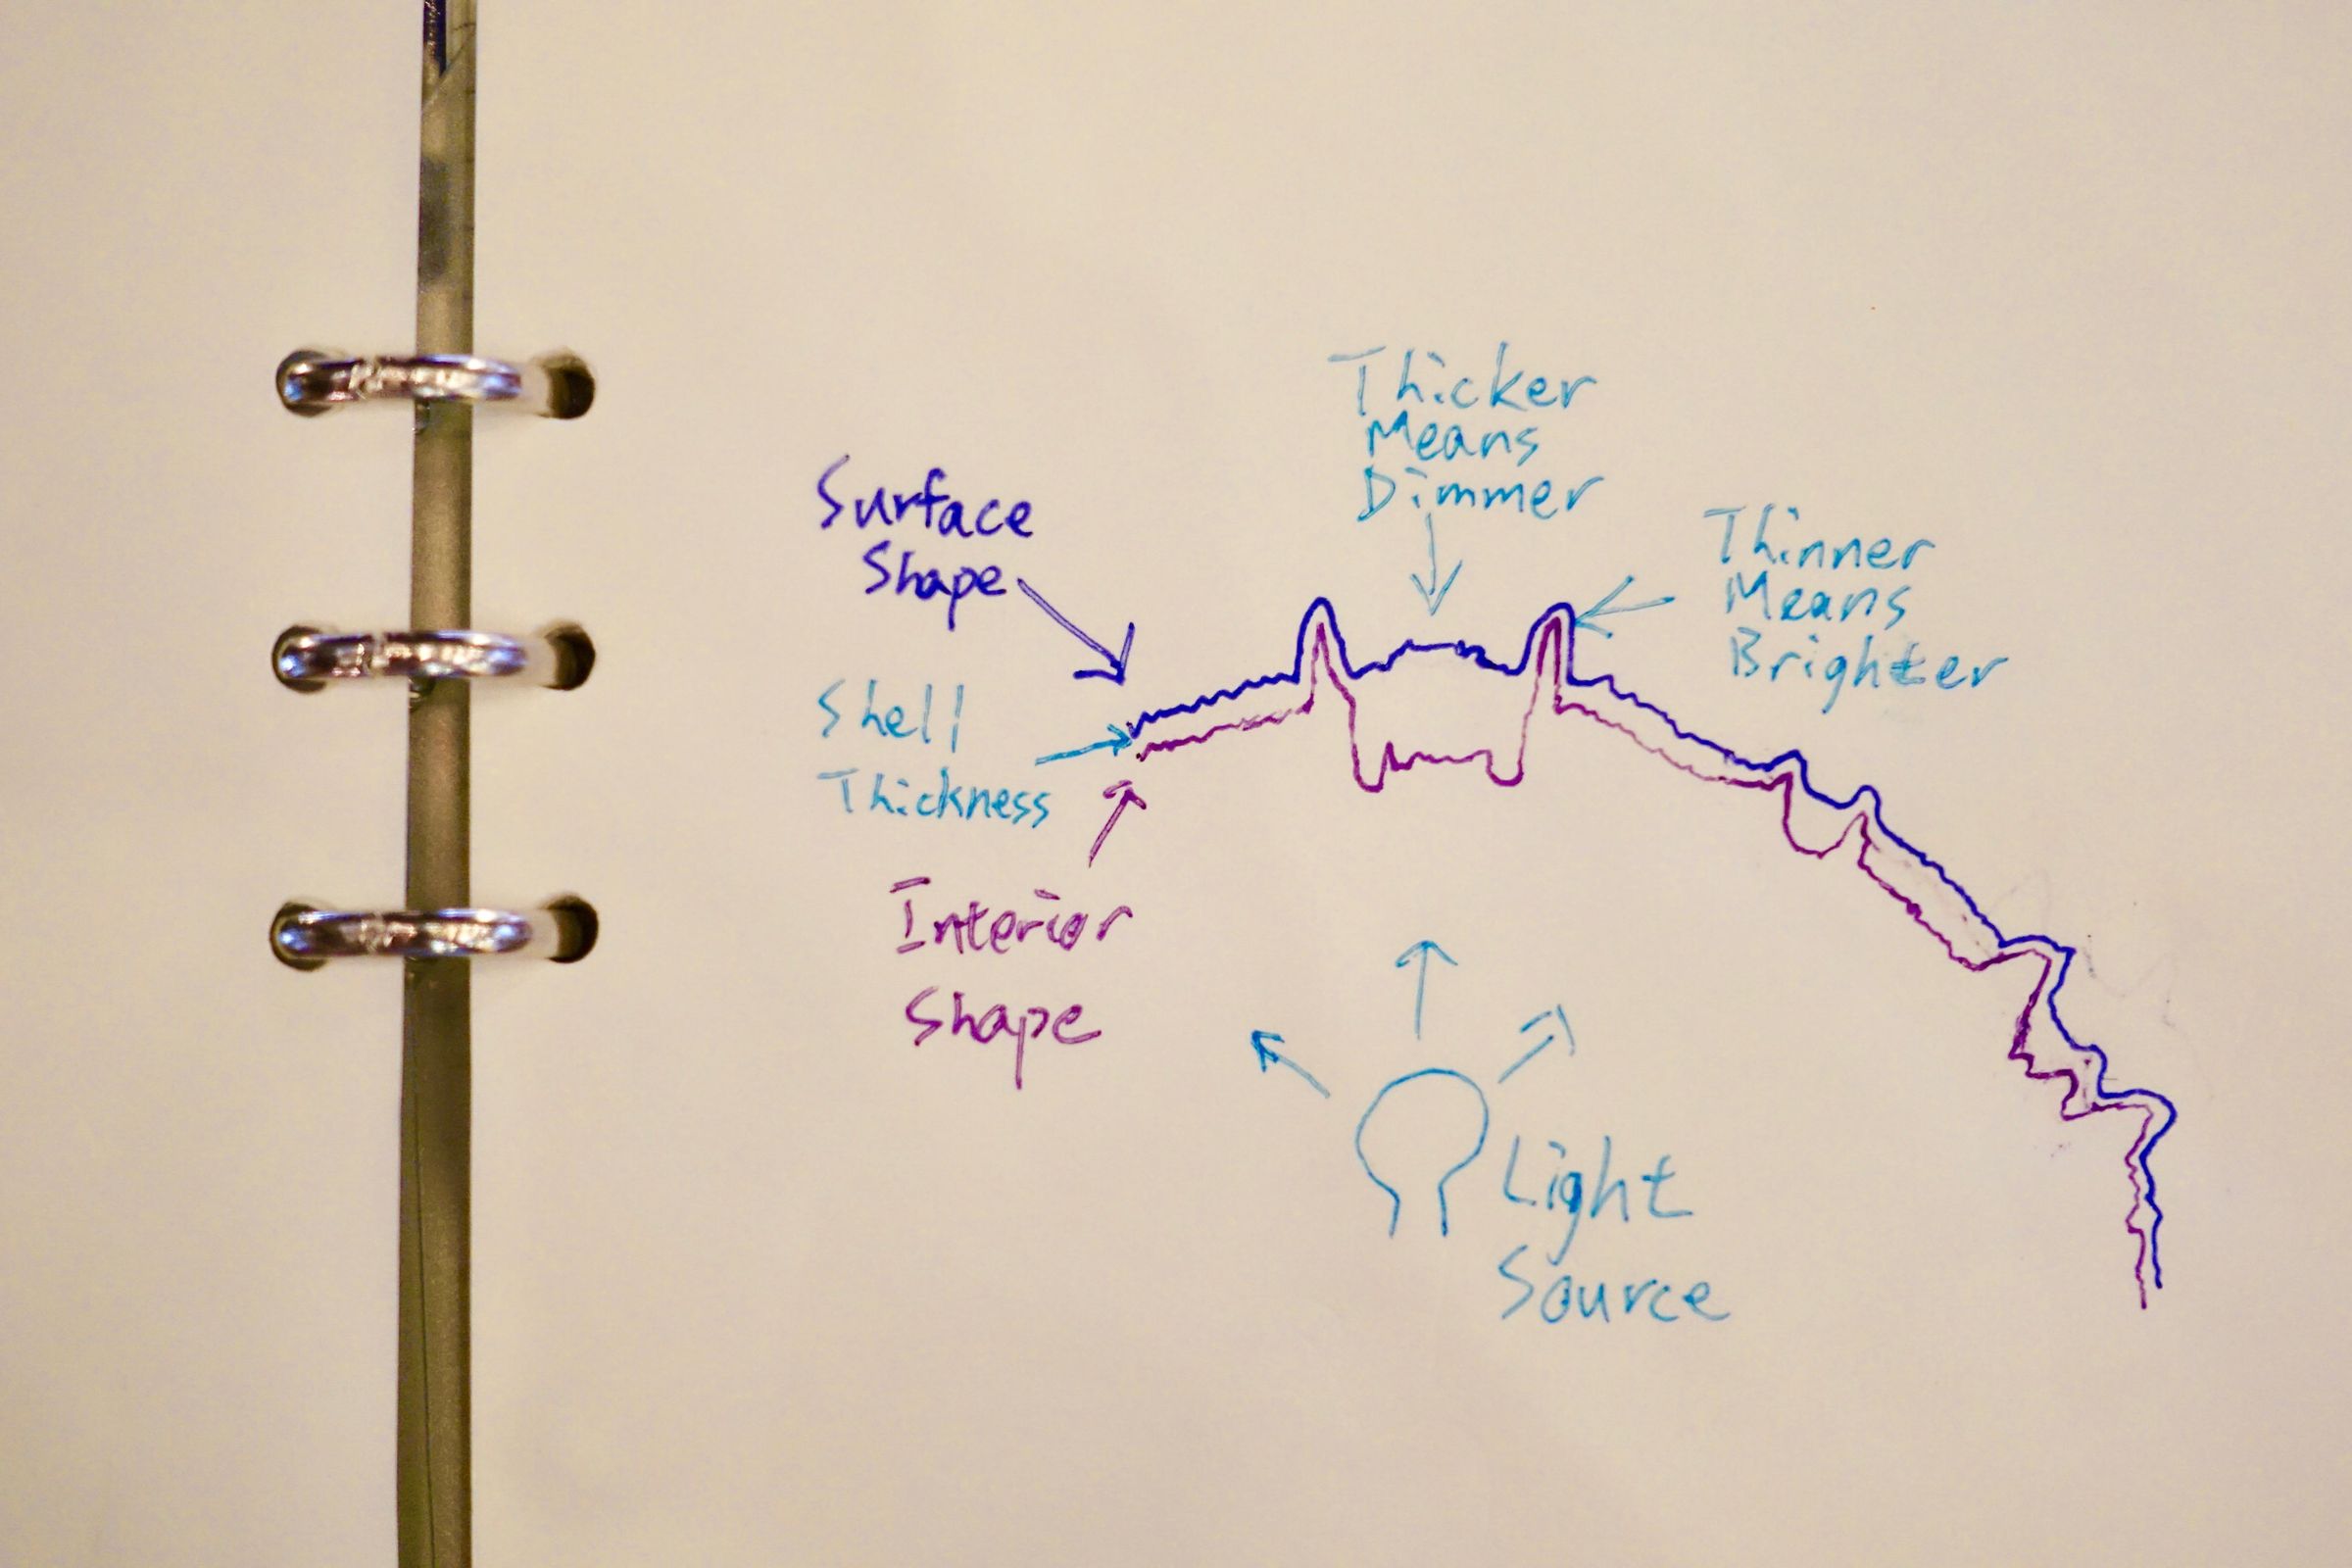 Thicker
Means
Dimmer
Surface
Shape
Thinner
Means
Brighter
Shell
Thickness
Interior
Shape
Light
Source